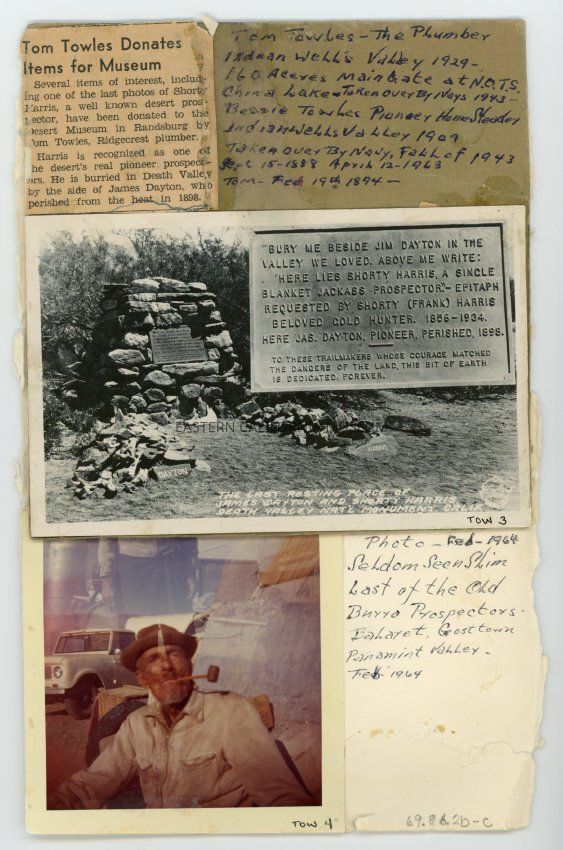 Tom Towles Donates
Items for Museum
Several items of interest, includ-
ing one of the last photos of Shorty
Harris, a well known desert pros-
pector, have been donated to the
Desert Museum in Randsburg by
Tom Towles, Ridgecrest plumber.
Harris is recognized as one of
the desert's real pioneer prospect-
ors. He is burried in Death Valley
by the side of James Dayton, who
perished from the heat in 1898.
Tom Towles - The Plumber
Indian Wells Valley 1929-
160 Aceres Main Gate at N.O.T.S.
China Lake - Taken Over By Navy 1943-
Bessie Towles Pioneer HomeSteader
Indian Wells Valley 1909
Taken over By Navy, Fall of 1943
Sept 15-1888 April 12-1963
Tom - Feb 19th 1894 -
"BURY ME BESIDE JIM DAYTON IN THE
VALLEY WE LOVED. ABOVE ME WRITE:
"HERE LIES SHORTY HARRIS, A SINGLE
BLANKET JACKASS PROSPECTOR."- EPITAPH
REQUESTED BY SHORTY (FRANK) HARRIS
BELOVED GOLD HUNTER. 1856-1934.
HERE JAS. DAYTON, PIONEER, PERISHED, 1898.
TO THESE TRAILMAKERS WHOSE COURAGE MATCHED
THE DANGERS OF THE LAND, THIS BIT OF EARTH
IS DEDICATED FOREVER.
EASTERN
DAYTON
HARRIS
THE LAST RESTING PLACE OF
JAMES DAYTON AND SHORTY HARRIS
DEATH VALLEY NAT'L MONUMENT CALIF.
TOW 3
Photo - Feb - 1964
Seldom Seen Slim
Last of the Old
Burro Prospectors-
Balaret, Gosttown
Panamint Valley -
Feb 1964
TOW 4
69.86.2b-c